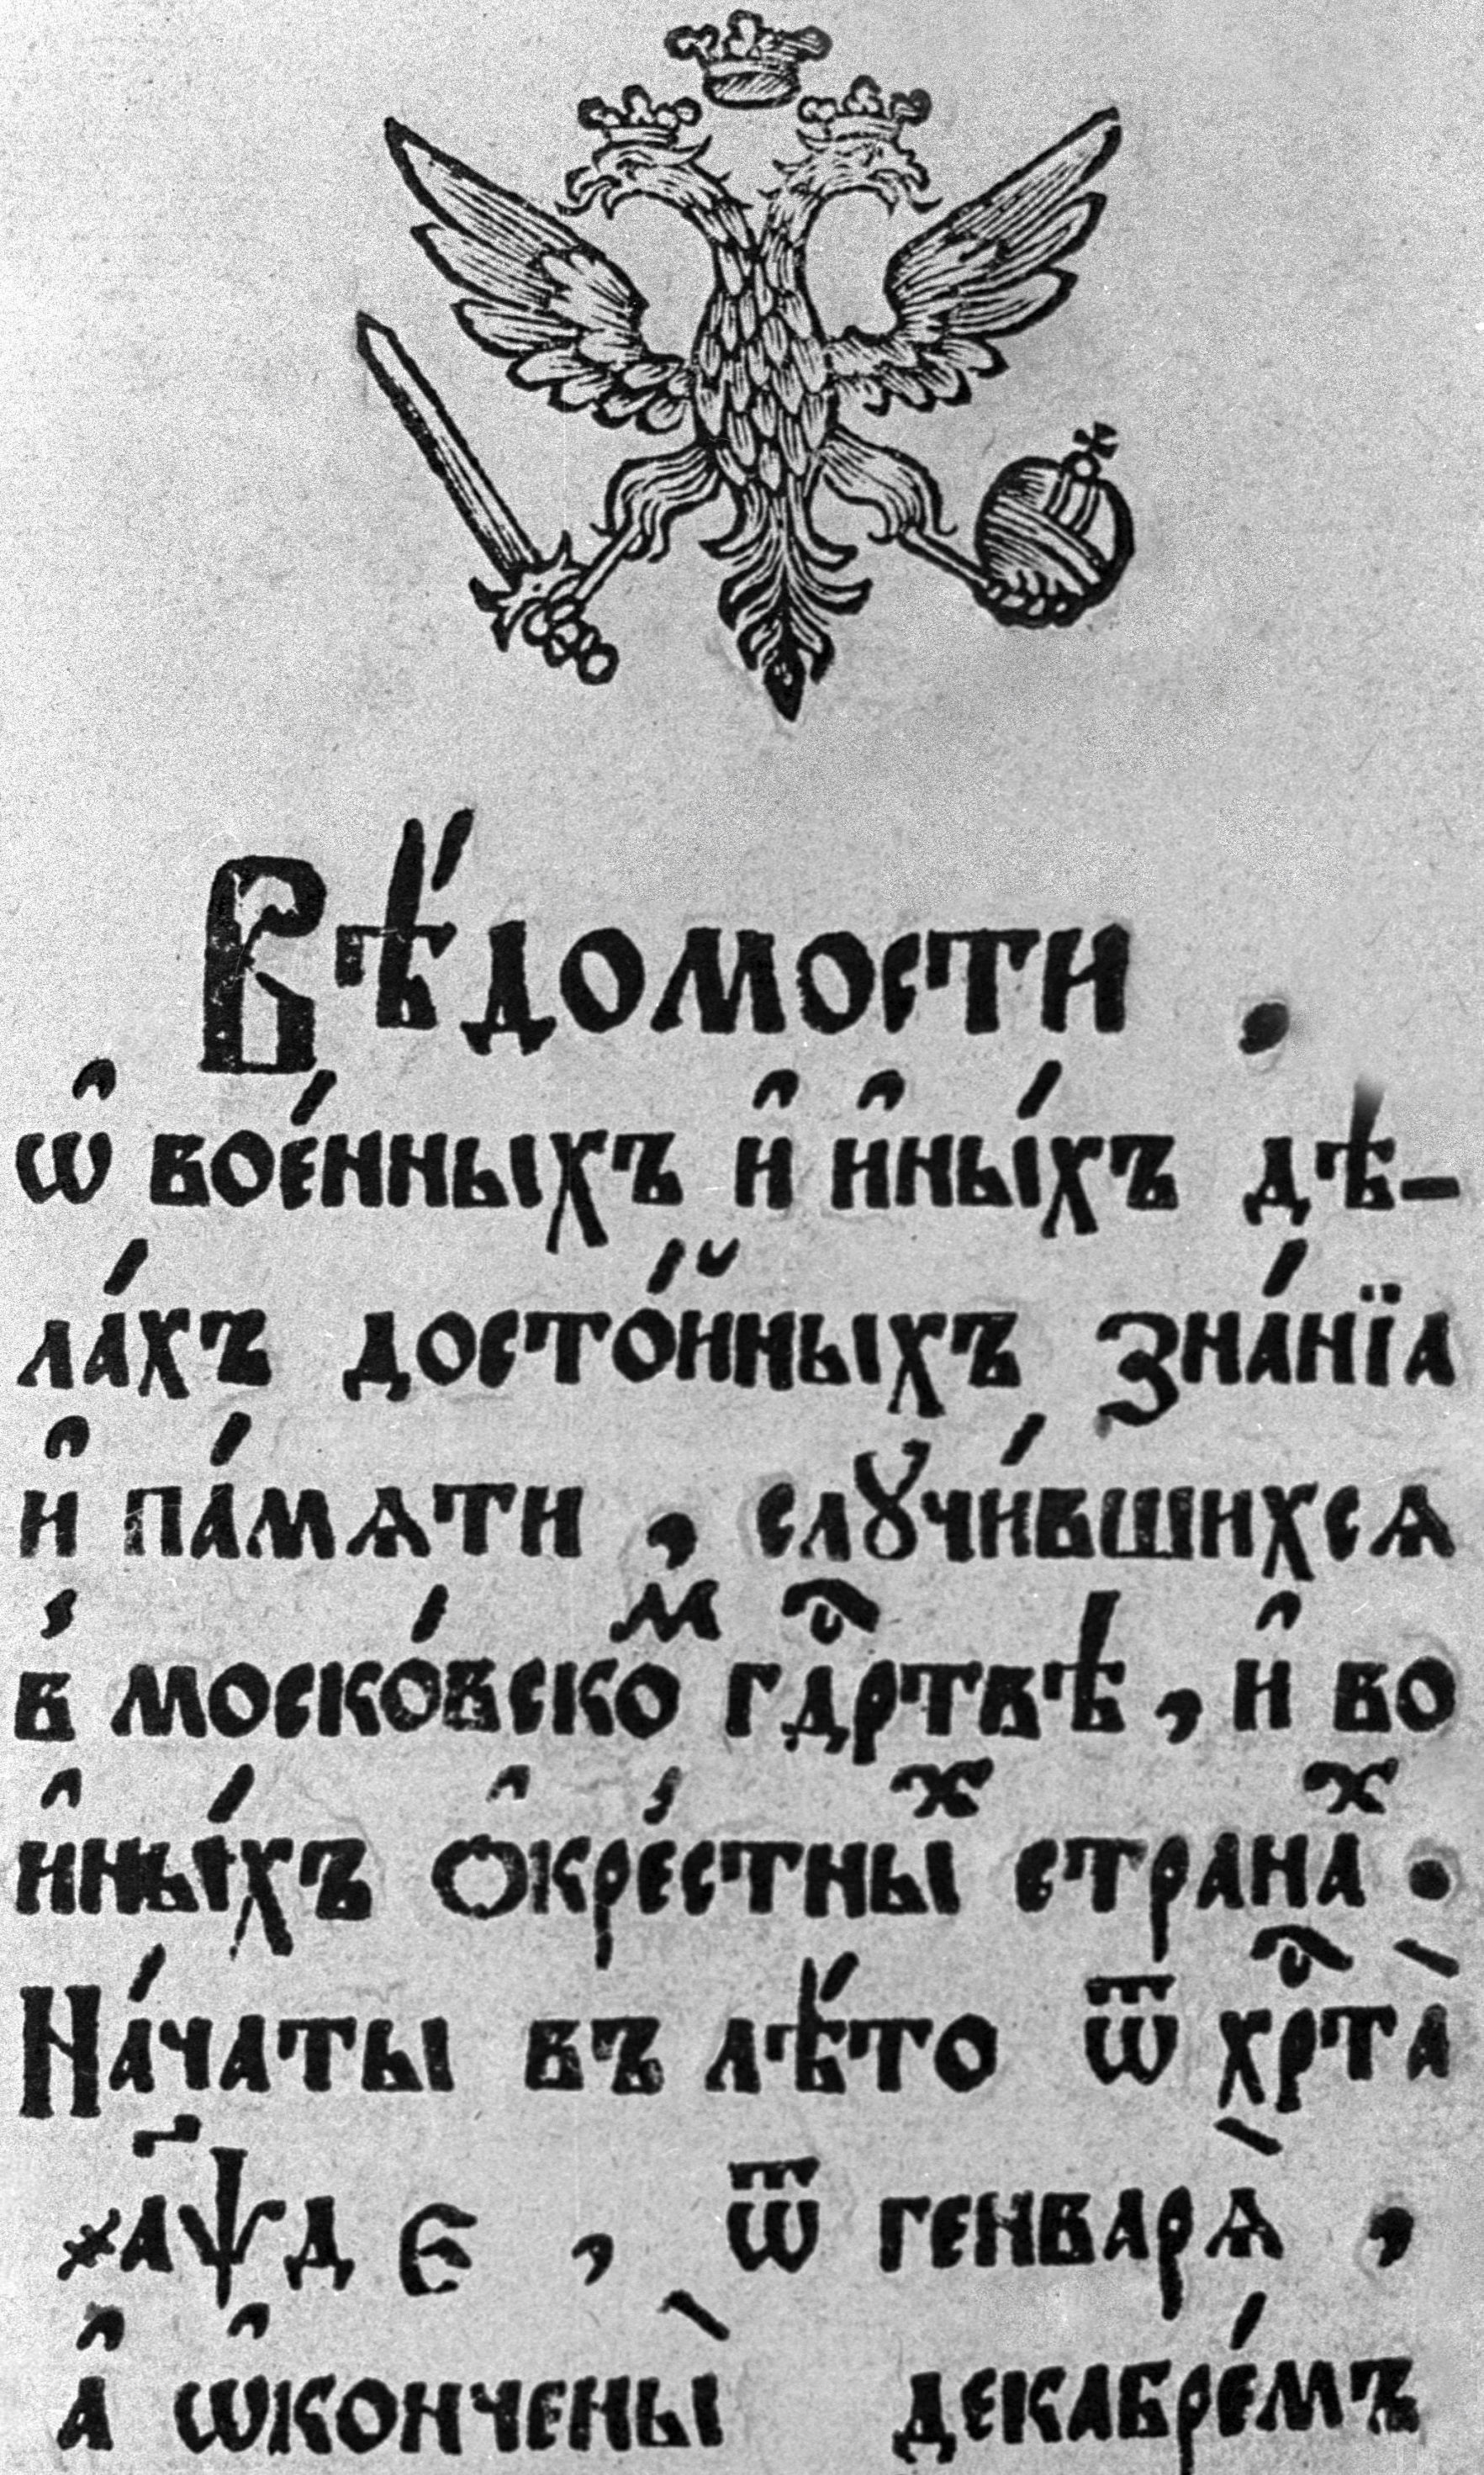 Вѣ́домости .
ѡ҆ вое́нныхъ и҆ и҆ны́хъ дѣ-
ла́хъ досто́йныхъ зна́нїѧ
и҆ па́мѧти , слꙋчи́вшихсѧ
в̾ моско́вскоⷨ гдⷭ҇ртвѣ , и҆ во
и҆ны́хъ ѻ҆кре́стныⷯ странаⷯ .
На́чаты въ лѣ́то ѿ хрⷭ҇та̀
҂аѱд҃ є , ѿ генварѧ̀ ,
а҆ ѡ҆кончены̀ декабре́мъ